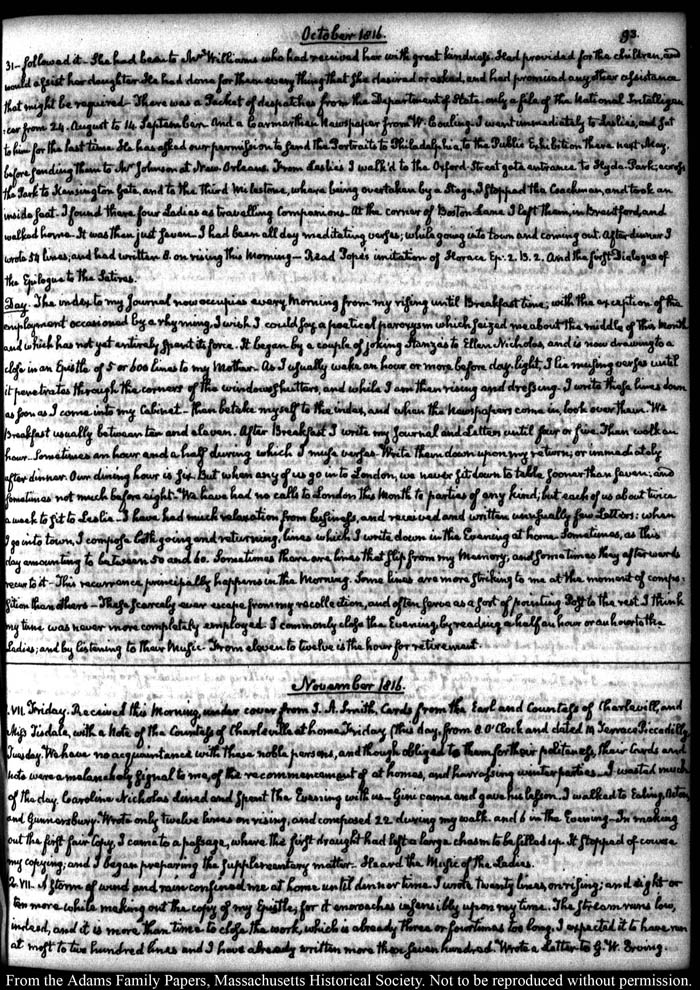 October 1816.
93.
31 - followed it - She had been to Mrs Williams who had received her with great kindness. Had provided for the children, and
would assist her daughter. He had done for them every thing that she desired or asked, and had promised any other assistance
that might be required - There was a Packet of despatches from the Department of State - only a file of the National Intelligen
:cer from 24. August to 14 September. And a Carmarthen Newspaper from W. Couling. I went immediately to Leslie's, and sat
to him for the last time. He has asked our permission to send the Portraits to Philadelphia, to the Public Exhibition there next May,
before sending them to Mr Johnson at New Orleans. From Leslie's I walk'd to the Oxford Street gate entrance to Hyde-Park; across
the Park to Kensington Gate, and to the third Milestone, where being overtaken by a Stage, I stopped the Coachman, and took an
inside seat. I found there four Ladies as travelling Companions. At the corner of Boston Lane I left them, in Brentford, and
walked home. It was then just seven. I had been all day meditating verses; while going into town and coming out. After dinner I
wrote 54 lines; and had written 8. on rising this Morning - Read Pope's imitation of Horace Ep: 2. B. 2. And the first Dialogue of
the Epilogue to the Satires.
Day. The index to my Journal now occupies every Morning from my rising until Breakfast time; with the exception of the
employment occasioned by a rhyming, I wish I could say, a poetical paroxysm which seized me about the middle of this Month
and which has not yet entirely spent its force. It began by a couple of joking Stanzas to Ellen Nicholas, and is now drawing to a
close in an Epistle of 5 or 600 lines to my Mother. As I usually wake an hour or more before day-light, I lie musing verses until
it penetrates through the corners of the window shutters, and while I am then rising and dressing. I write these lines down
as soon as I come into my Cabinet - then betake myself to the index, and when the Newspapers come in, look over them. We
Breakfast usually between ten and eleven. After Breakfast I write my Journal and Letters until four or five. Then walk an
hour - Sometimes an hour and a half during which I muse verses - Write them down upon my return, or immediately
after dinner. Our dining hour is six. But when any of us go into London, we never sit down to table sooner than seven; and
sometimes not much before eight. We have had no calls to London this Month to parties of any kind; but each of us about twice
a week to sit to Leslie. I have had much relaxation from business, and received and written unusually few Letters: when
I go into town, I compose both going and returning, lines which I write down in the Evening at home. Sometimes, as this
day amounting to between 50 and 60. Sometimes there are lines that slip from my Memory, and sometimes they afterwards
recur to it - This recurrence principally happens in the Morning. Some lines are more striking to me at the moment of compo:
:sition than others - These scarcely ever escape from my recollection, and often serve as a sort of pointing Post to the rest. I think
my time was never more completely employed. I commonly close the Evening, by reading a half an hour or an hour to the
Ladies; and by listening to their Music - From eleven to twelve is the hour for retirement.
November 1816.
1. VII. Friday. Received this Morning, under cover from J. A. Smith, Cards from the Earl and Countess of Charleville, and
Miss Tisdale, with a Note of the Countess of Charleville at home Friday (this day, from 8 O'Clock and dated 14 Terrace Piccadilly
Tuesday. We have no acquaintance with these noble persons, and though obliged to them for their politeness, their Cards and
Note were a melancholy signal to me, of the recommencement of at homes, and harrassing winter parties. - I wasted much
of the day. Caroline Nicholas dined and spent the Evening with us - Gini came and gave his lesson. I walked to Ealing, Acton
and Gunnersbury. Wrote only twelve lines on rising, and composed 22 during my walk, and 6 in the Evening - In making
out the first fair Copy, I came to a passage, where the first draught had left a large chasm to be filled up. It stopped of course
my copying; and I began preparing the supplementary matter. Heard the Music of the Ladies.
2. VII. A Storm of wind and rain confined me at home until dinner time. I wrote twenty lines, on rising; and eight or
ten more while making out the copy of my Epistle; for it encroaches insensibly upon my time. The stream runs low,
indeed, and it is more than time to close the work, which is already three or four times too long. I expected it to have run
at most to two hundred lines and I have already written more than seven hundred. Wrote a Letter to G. W. Erving.
From the Adams Family Papers, Massachusetts Historical Society. Not to be reproduced without permission.